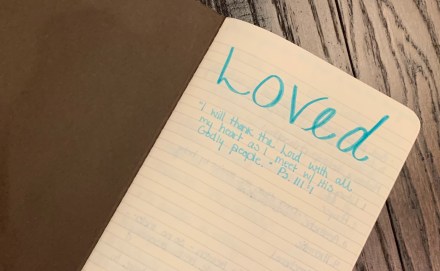 Loved
"I will thank the Lord with all
my heart as I meet w/ His
Godly people." Ps. 111:1